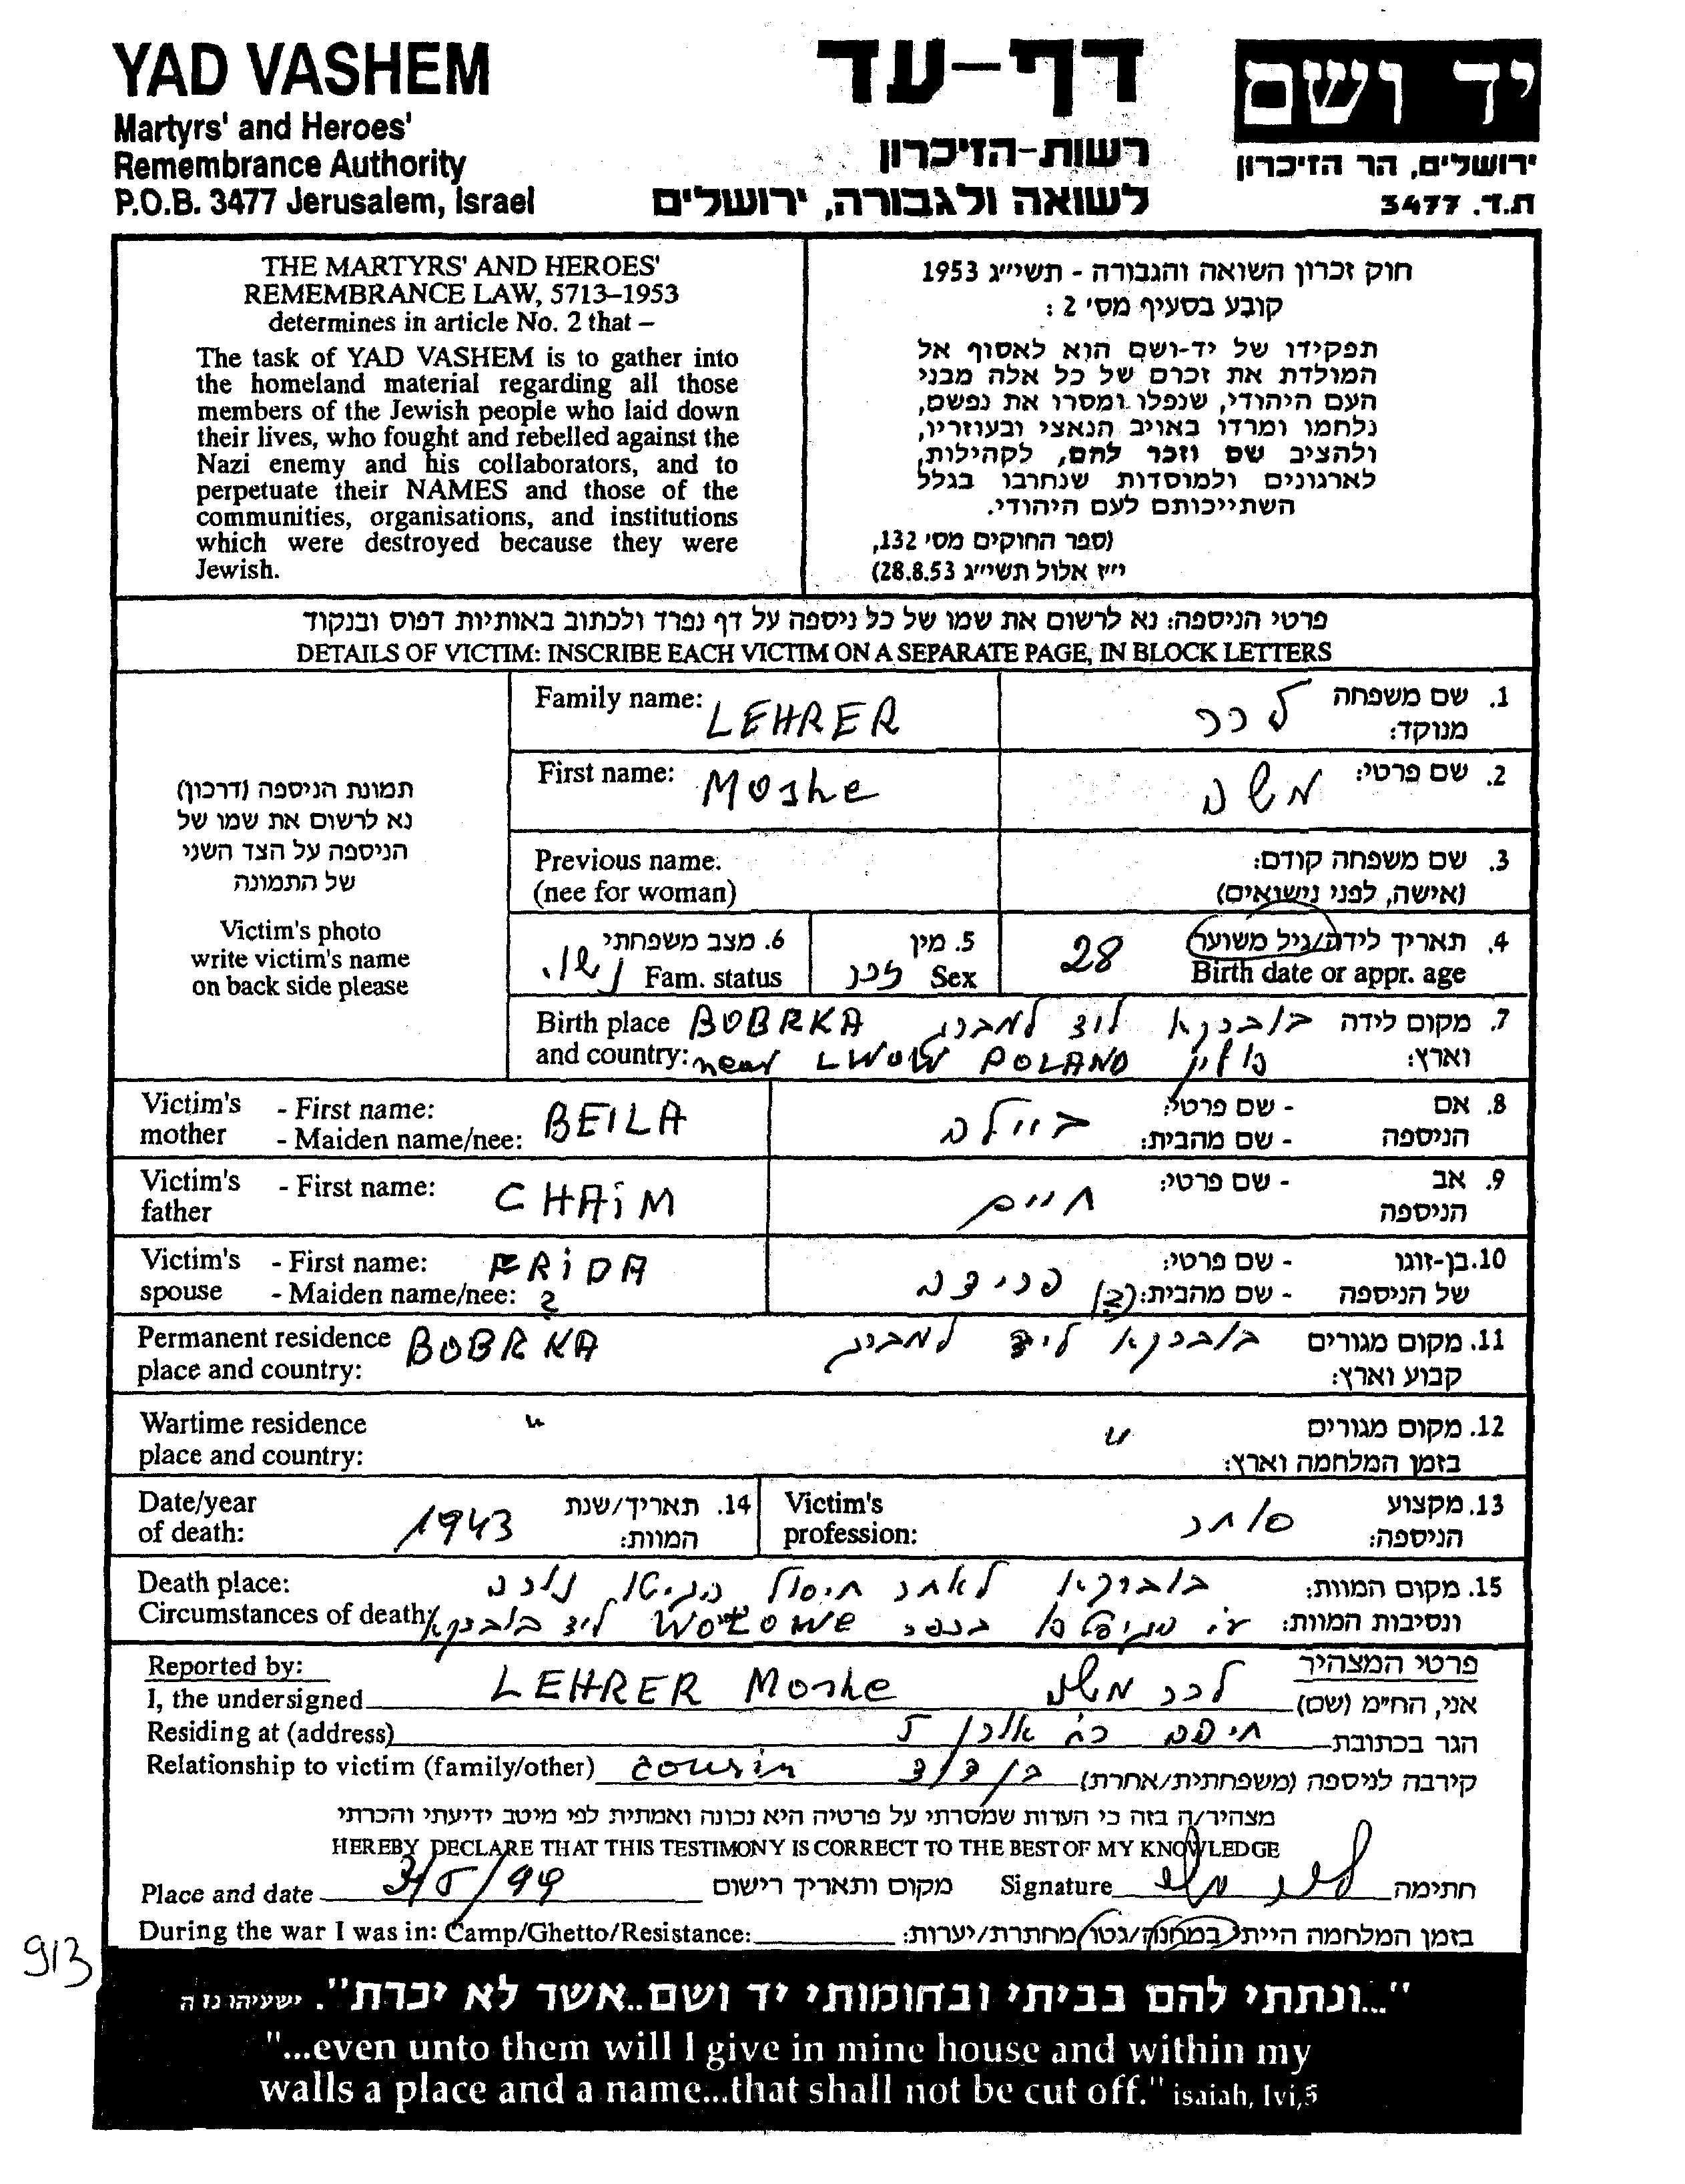 YAD VASHEM
Martyrs' and Heroes'
Remembrance Authority
P.O.B. 3477 Jerusalem, Israel
דף-עד
רשות-הזיכרון
לשואה ולגבורה, ירושלים
יד ושם
ירושלים, הר הזיכרון
ת.ד. 3477
THE MARTYRS' AND HEROES'
REMEMBRANCE LAW, 5713–1953
determines in article No. 2 that –
The task of YAD VASHEM is to gather into
the homeland material regarding all those
members of the Jewish people who laid down
their lives, who fought and rebelled against the
Nazi enemy and his collaborators, and to
perpetuate their NAMES and those of the
communities, organisations, and institutions
which were destroyed because they were
Jewish.
חוק זכרון השואה והגבורה - תשי״ג 1953
קובע בסעיף מס׳ 2 :
תפקידו של יד-ושם הוא לאסוף אל
המולדת את זכרם של כל אלה מבני
העם היהודי, שנפלו ומסרו את נפשם,
נלחמו ומרדו באויב הנאצי ובעוזריו,
ולהציב שם וזכר להם, לקהילות,
לארגונים ולמוסדות שנחרבו בגלל
השתייכותם לעם היהודי.
(ספר החוקים מס׳ 132,
י״ז אלול תשי״ג 28.8.53)
פרטי הניספה: נא לרשום את שמו של כל ניספה על דף נפרד ולכתוב באותיות דפוס ובנקוד
DETAILS OF VICTIM: INSCRIBE EACH VICTIM ON A SEPARATE PAGE, IN BLOCK LETTERS
תמונת הניספה (דרכון)
נא לרשום את שמו של
הניספה על הצד השני
של התמונה
Victim's photo
write victim's name
on back side please
Family name: LEHRER
1. שם משפחה מנוקד: לרר
First name: Moshe
2. שם פרטי: משה
Previous name:
(nee for woman)
3. שם משפחה קודם:
(אישה, לפני נישואים)
4. תאריך לידה/גיל משוער 28
Birth date or appr. age
5. מין Sex זכר
6. מצב משפחתי Fam. status נשוי
Birth place BOBRKA
and country: near LWOW POLAND
7. מקום לידה בוברקא ליד למברג
וארץ: פולין
Victim's mother - First name: BEILA
- Maiden name/nee:
8. אם הניספה - שם פרטי: ביילה
- שם מהבית:
Victim's father - First name: CHAIM
9. אב הניספה - שם פרטי: חיים
Victim's spouse - First name: FRIDA
- Maiden name/nee: ?
10. בן-זוגו של הניספה - שם פרטי: פרידה
- שם מהבית: (?)
Permanent residence BOBRKA
place and country:
11. מקום מגורים בוברקא ליד למברג
קבוע וארץ:
Wartime residence "
place and country:
12. מקום מגורים "
בזמן המלחמה וארץ:
Date/year of death: 1943
14. תאריך/שנת המוות:
Victim's profession:
13. מקצוע הניספה: סוחר
Death place:
Circumstances of death:
15. מקום המוות: בוברקא לאחר חיסול הגיטו נלכד
ונסיבות המוות: ע״י בכפר WOŁOWE ליד בוברקא
Reported by:
פרטי המצהיר
I, the undersigned LEHRER Moshe
אני, הח״מ (שם) לרר משה
Residing at (address)
הגר בכתובת חיפה אלון 5
Relationship to victim (family/other) cousin
קירבה לניספה (משפחתית/אחרת) בן דוד
מצהיר/ה בזה כי העדות שמסרתי על פרטיה היא נכונה ואמתית לפי מיטב ידיעתי והכרתי
HEREBY DECLARE THAT THIS TESTIMONY IS CORRECT TO THE BEST OF MY KNOWLEDGE
Place and date 3/5/99 מקום ותאריך רישום
Signature לרר משה חתימה
During the war I was in: Camp/Ghetto/Resistance:
בזמן המלחמה הייתי במחנה/גטו/מחתרת/יערות:
913
"...ונתתי להם בביתי ובחומותי יד ושם..אשר לא יכרת". ישעיהו נו ה
"...even unto them will I give in mine house and within my
walls a place and a name...that shall not be cut off." isaiah, lvi,5